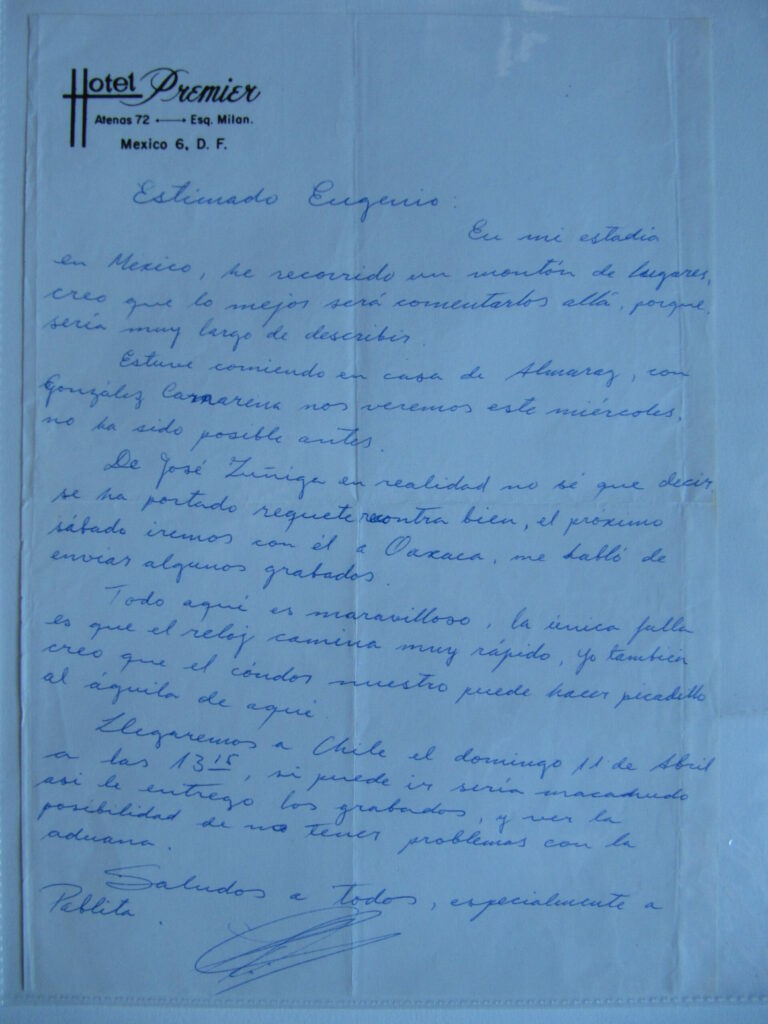 Hotel Premier
Atenas 72 ⟷ Esq. Milan.
Mexico 6, D. F.
Estimado Eugenio:
En mi estadia
en Mexico, he recorrido un montón de lugares,
creo que lo mejor será comentarlos allá, porque,
sería muy largo de describir.
Estuve comiendo en casa de Almaraz, con
González Camarena nos veremos este miércoles,
no ha sido posible antes.
De José Zuñiga en realidad no sé que decir
se ha portado requete recontra bien, el próximo
sábado iremos con él a Oaxaca, me habló de
enviar algunos grabados.
Todo aquí es maravilloso, la única falla
es que el reloj camina muy rápido, yo también
creo que el cóndor nuestro puede hacer picadillo
al águila de aquí.
Llegaremos a Chile el domingo 11 de Abril
a las 13 15, si puede ir sería macanudo
asi le entrego los grabados, y ver la
posibilidad de no tener problemas con la
aduana.
Saludos a todos, especialmente a
Pablita.